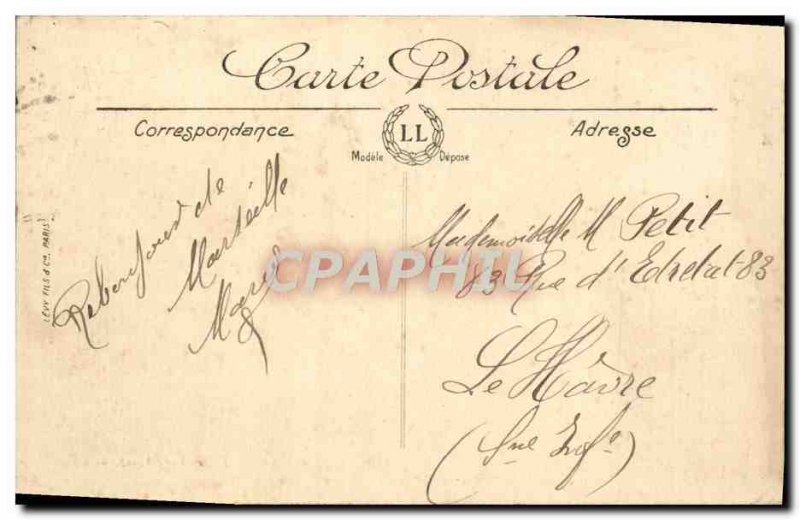 Carte Postale
Correspondance
LL
Adresse
Modèle Déposé
LÉVY FILS & Cie, PARIS
Rebonjour de
Marseille
Mademoiselle M Petit
83 Rue d'Etretat 83
Le Hâvre
(Sne Infre)
CPAPHIL